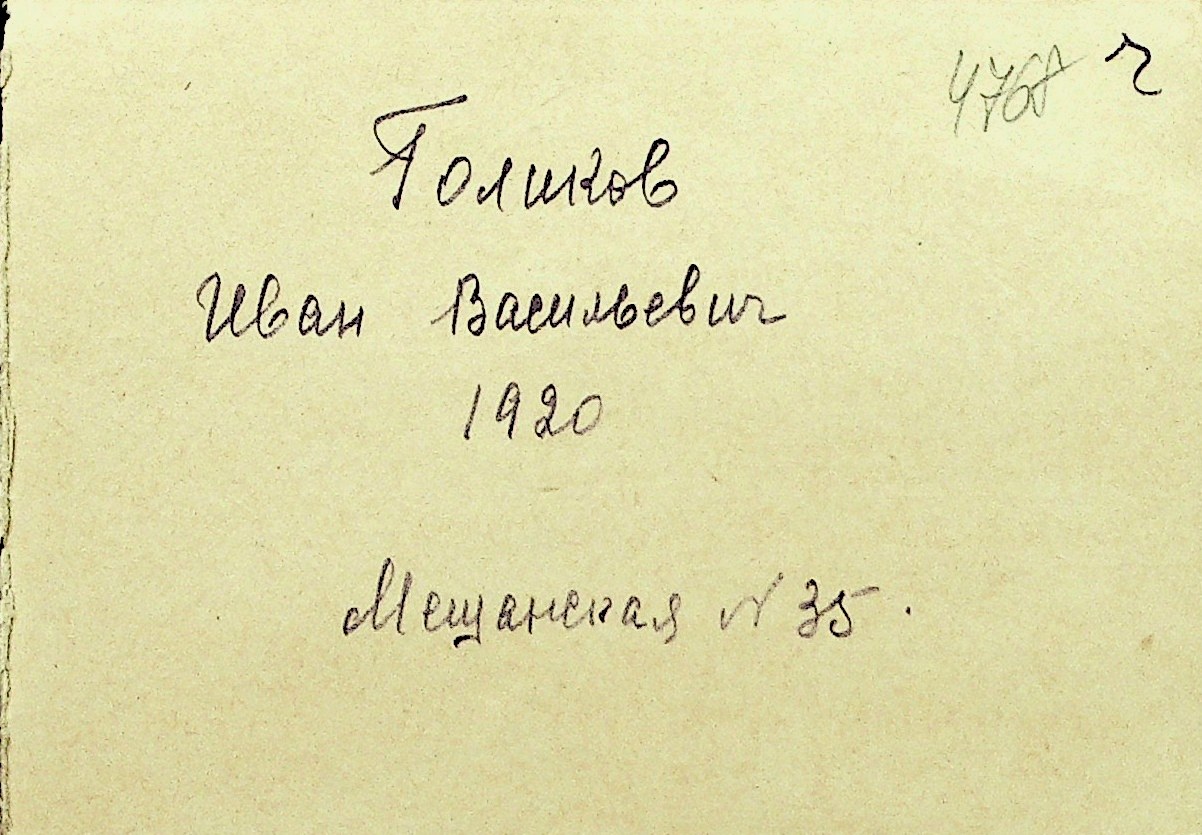 ч
Голиков
Иван Васильевич
1920
Мещанская N 35.